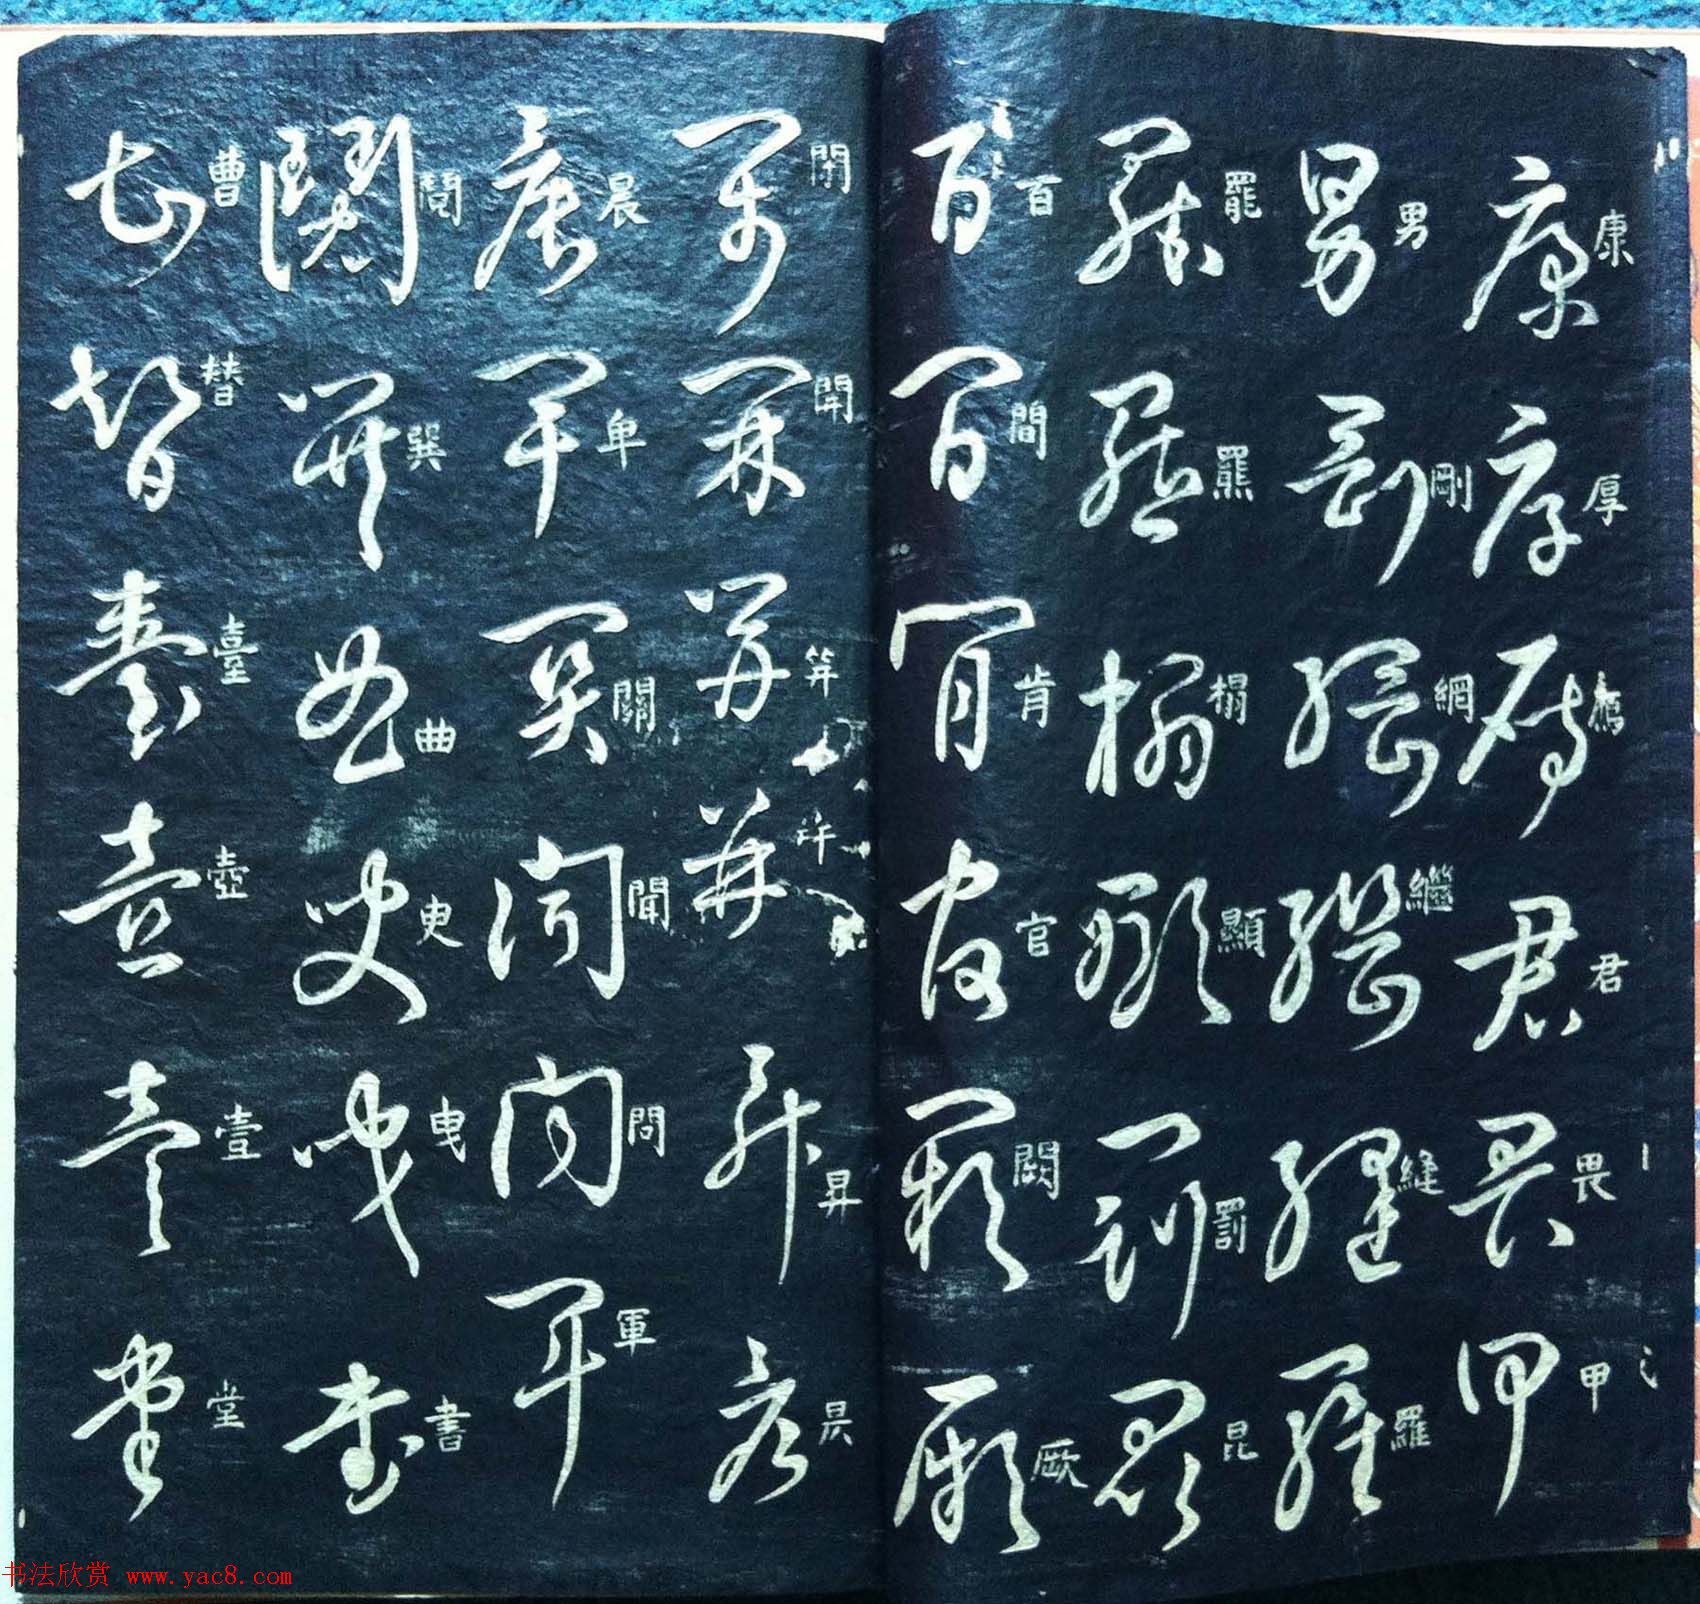 康 厚 君 畏 甲
男 剛 網 繼 縫 羅
罷 羆 榻 顯 罰 昆
百 間 肯 官 闕 厥
閉 開 笄 昇 昃
晨 单 關 聞 問 軍
鬧 巽 曲 臾 曳 書
曹 替 臺 壺 壹 堂
书法欣赏 www.yac8.com